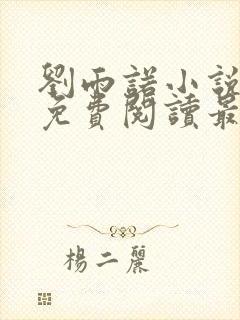 劉雨諾小說
免費閱讀最
楊二麗